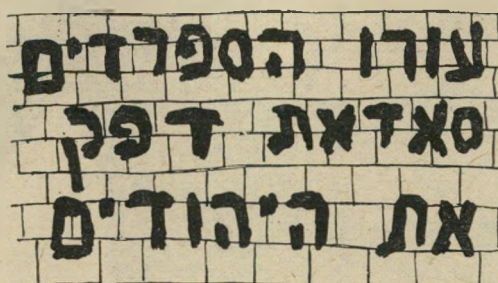 עורו הספרדים
סאדאת דפק
את היהודים